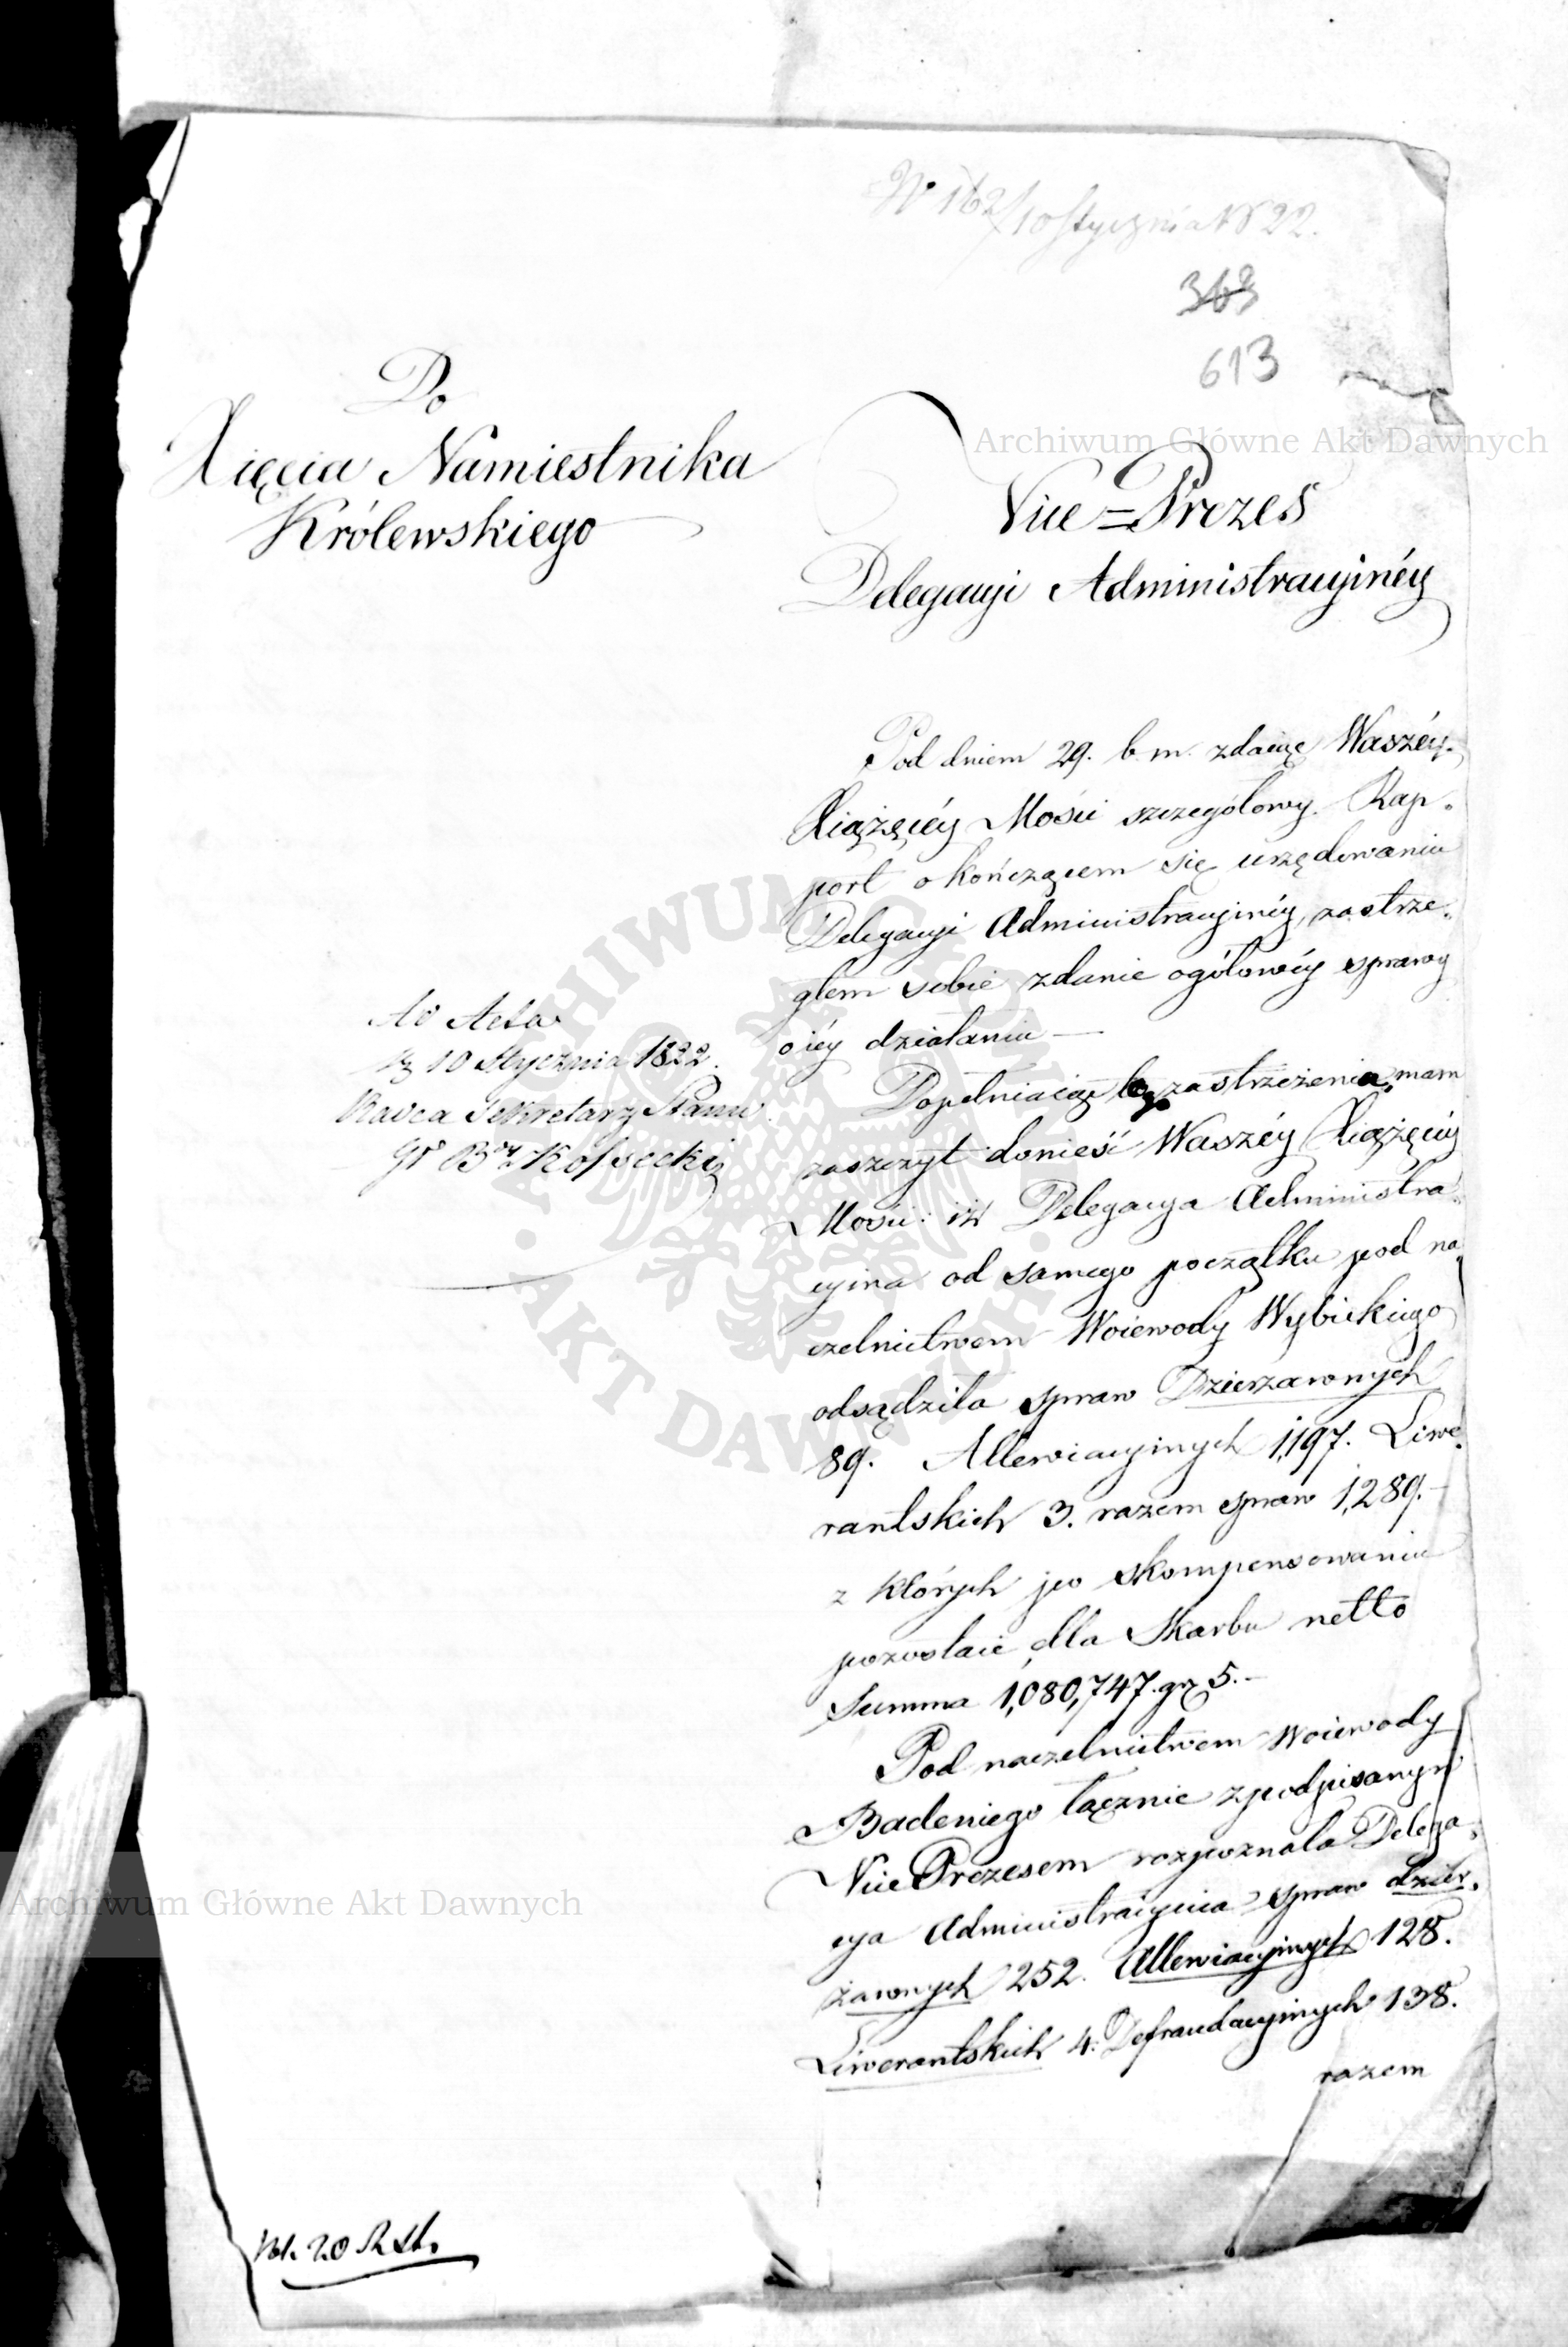 N 162/10 Stycznia 1822.
363
613
Do
Xięcia Namiestnika
Królewskiego
Archiwum Główne Akt Dawnych
Vice=Prezes
Delegacyi Administracyinéy
Pod dniem 29. b. m. zdaiąc Waszéy
Xiążęcéy Mości szczegółowy Rap-
port o kończącem się urzędowaniu
Delegacyi Administracyinéy, zastrze-
głem sobie zdanie ogółowéy sprawy
o iéy działaniu —
Dopełniaiąc zastrzeżenia, mam
zaszczyt donieść Waszéy Xiążęcéy
Mości: iż Delegacya Administra-
cyina od samego początku pod na-
czelnictwem Woiewody Wybickiego
odsądziła spraw Dzierżawnych
89. Allewiacyinych 1,197. Liwe-
rantskich 3. razem spraw 1,289.—
z których po skompensowaniu
pozostaie dla Skarbu netto
Summa 1,080,747. gr 5.—
Pod naczelnictwem Woiewody
Badeniego łącznie z podpisanym
Vice Prezesem rozpoznała Delega-
cya Administracyina spraw dzier-
żawnych 252. Allewiacyinych 128.
Liwerantskich 4. Defraudacyinych 138.
razem
Ad Acta
10 Stycznia 1822.
Radca Sekretarz Stanu
Kossecki
ARCHIWUM GŁÓWNE
AKT DAWNYCH
Archiwum Główne Akt Dawnych